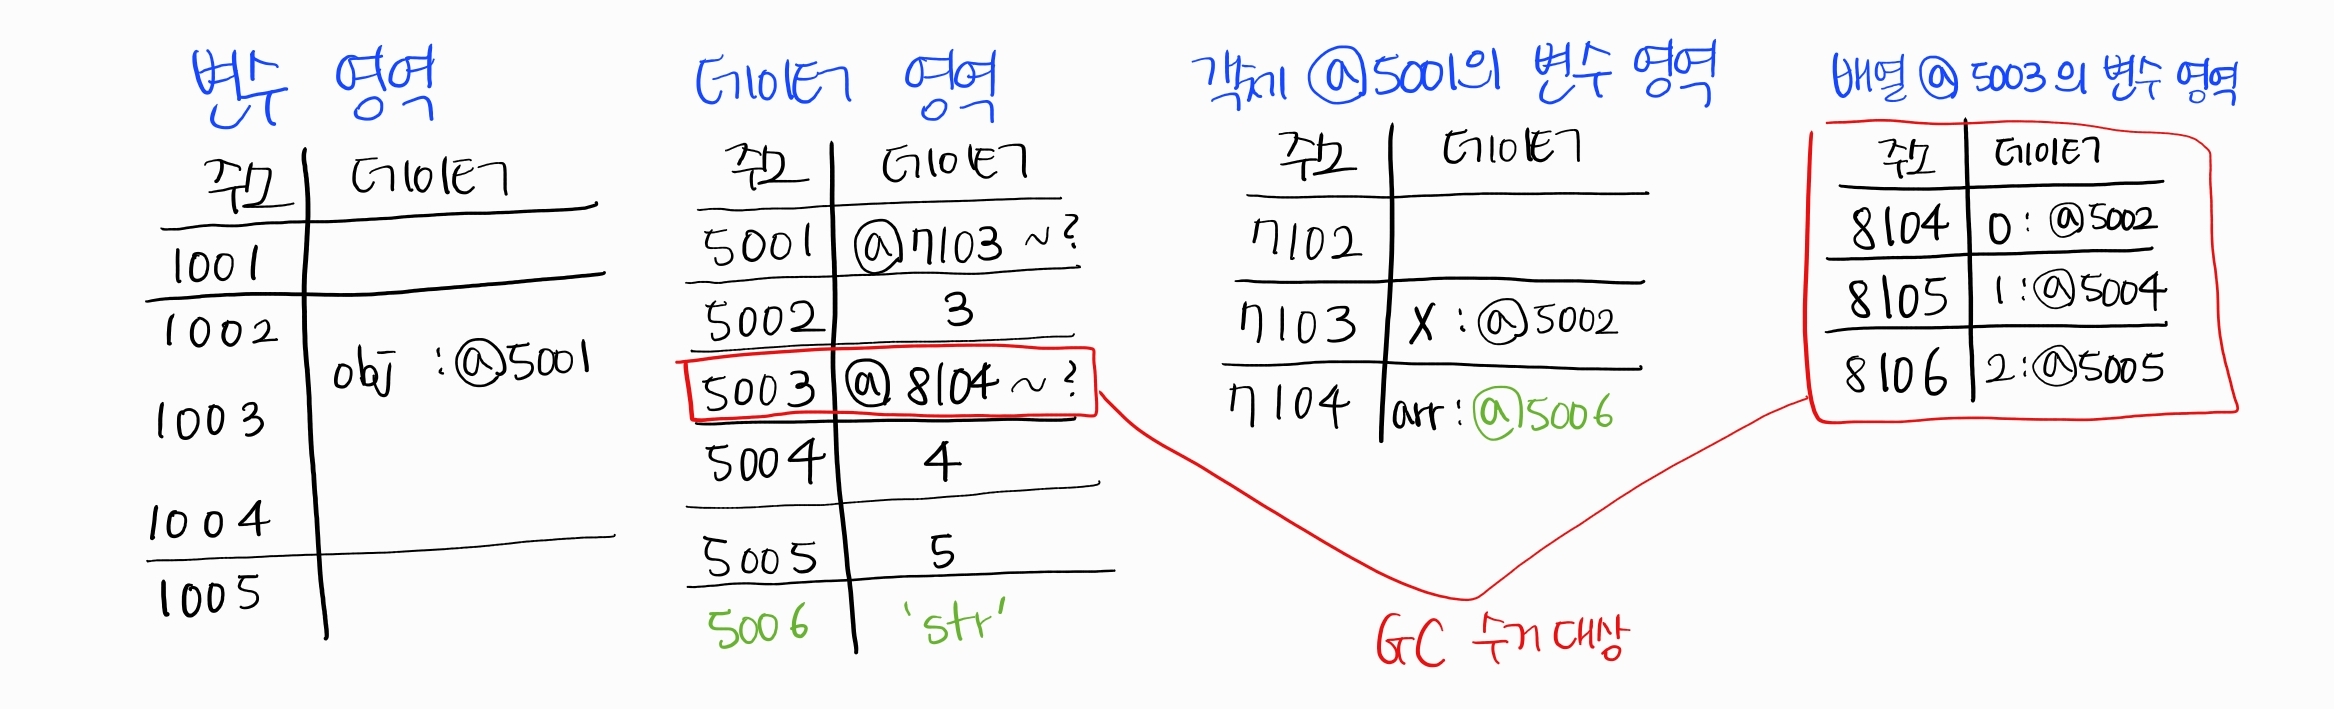 변수 영역
주소 데이터
1001
1002
obj : @5001
1003
1004
1005
데이터 영역
주소 데이터
5001 @7103 ~ ?
5002 3
5003 @8104 ~ ?
5004 4
5005 5
5006 'str'
객체 @5001의 변수 영역
주소 데이터
7102
7103 x : @5002
7104 arr : @5006
배열 @5003의 변수 영역
주소 데이터
8104 0 : @5002
8105 1 : @5004
8106 2 : @5005
GC 수거 대상